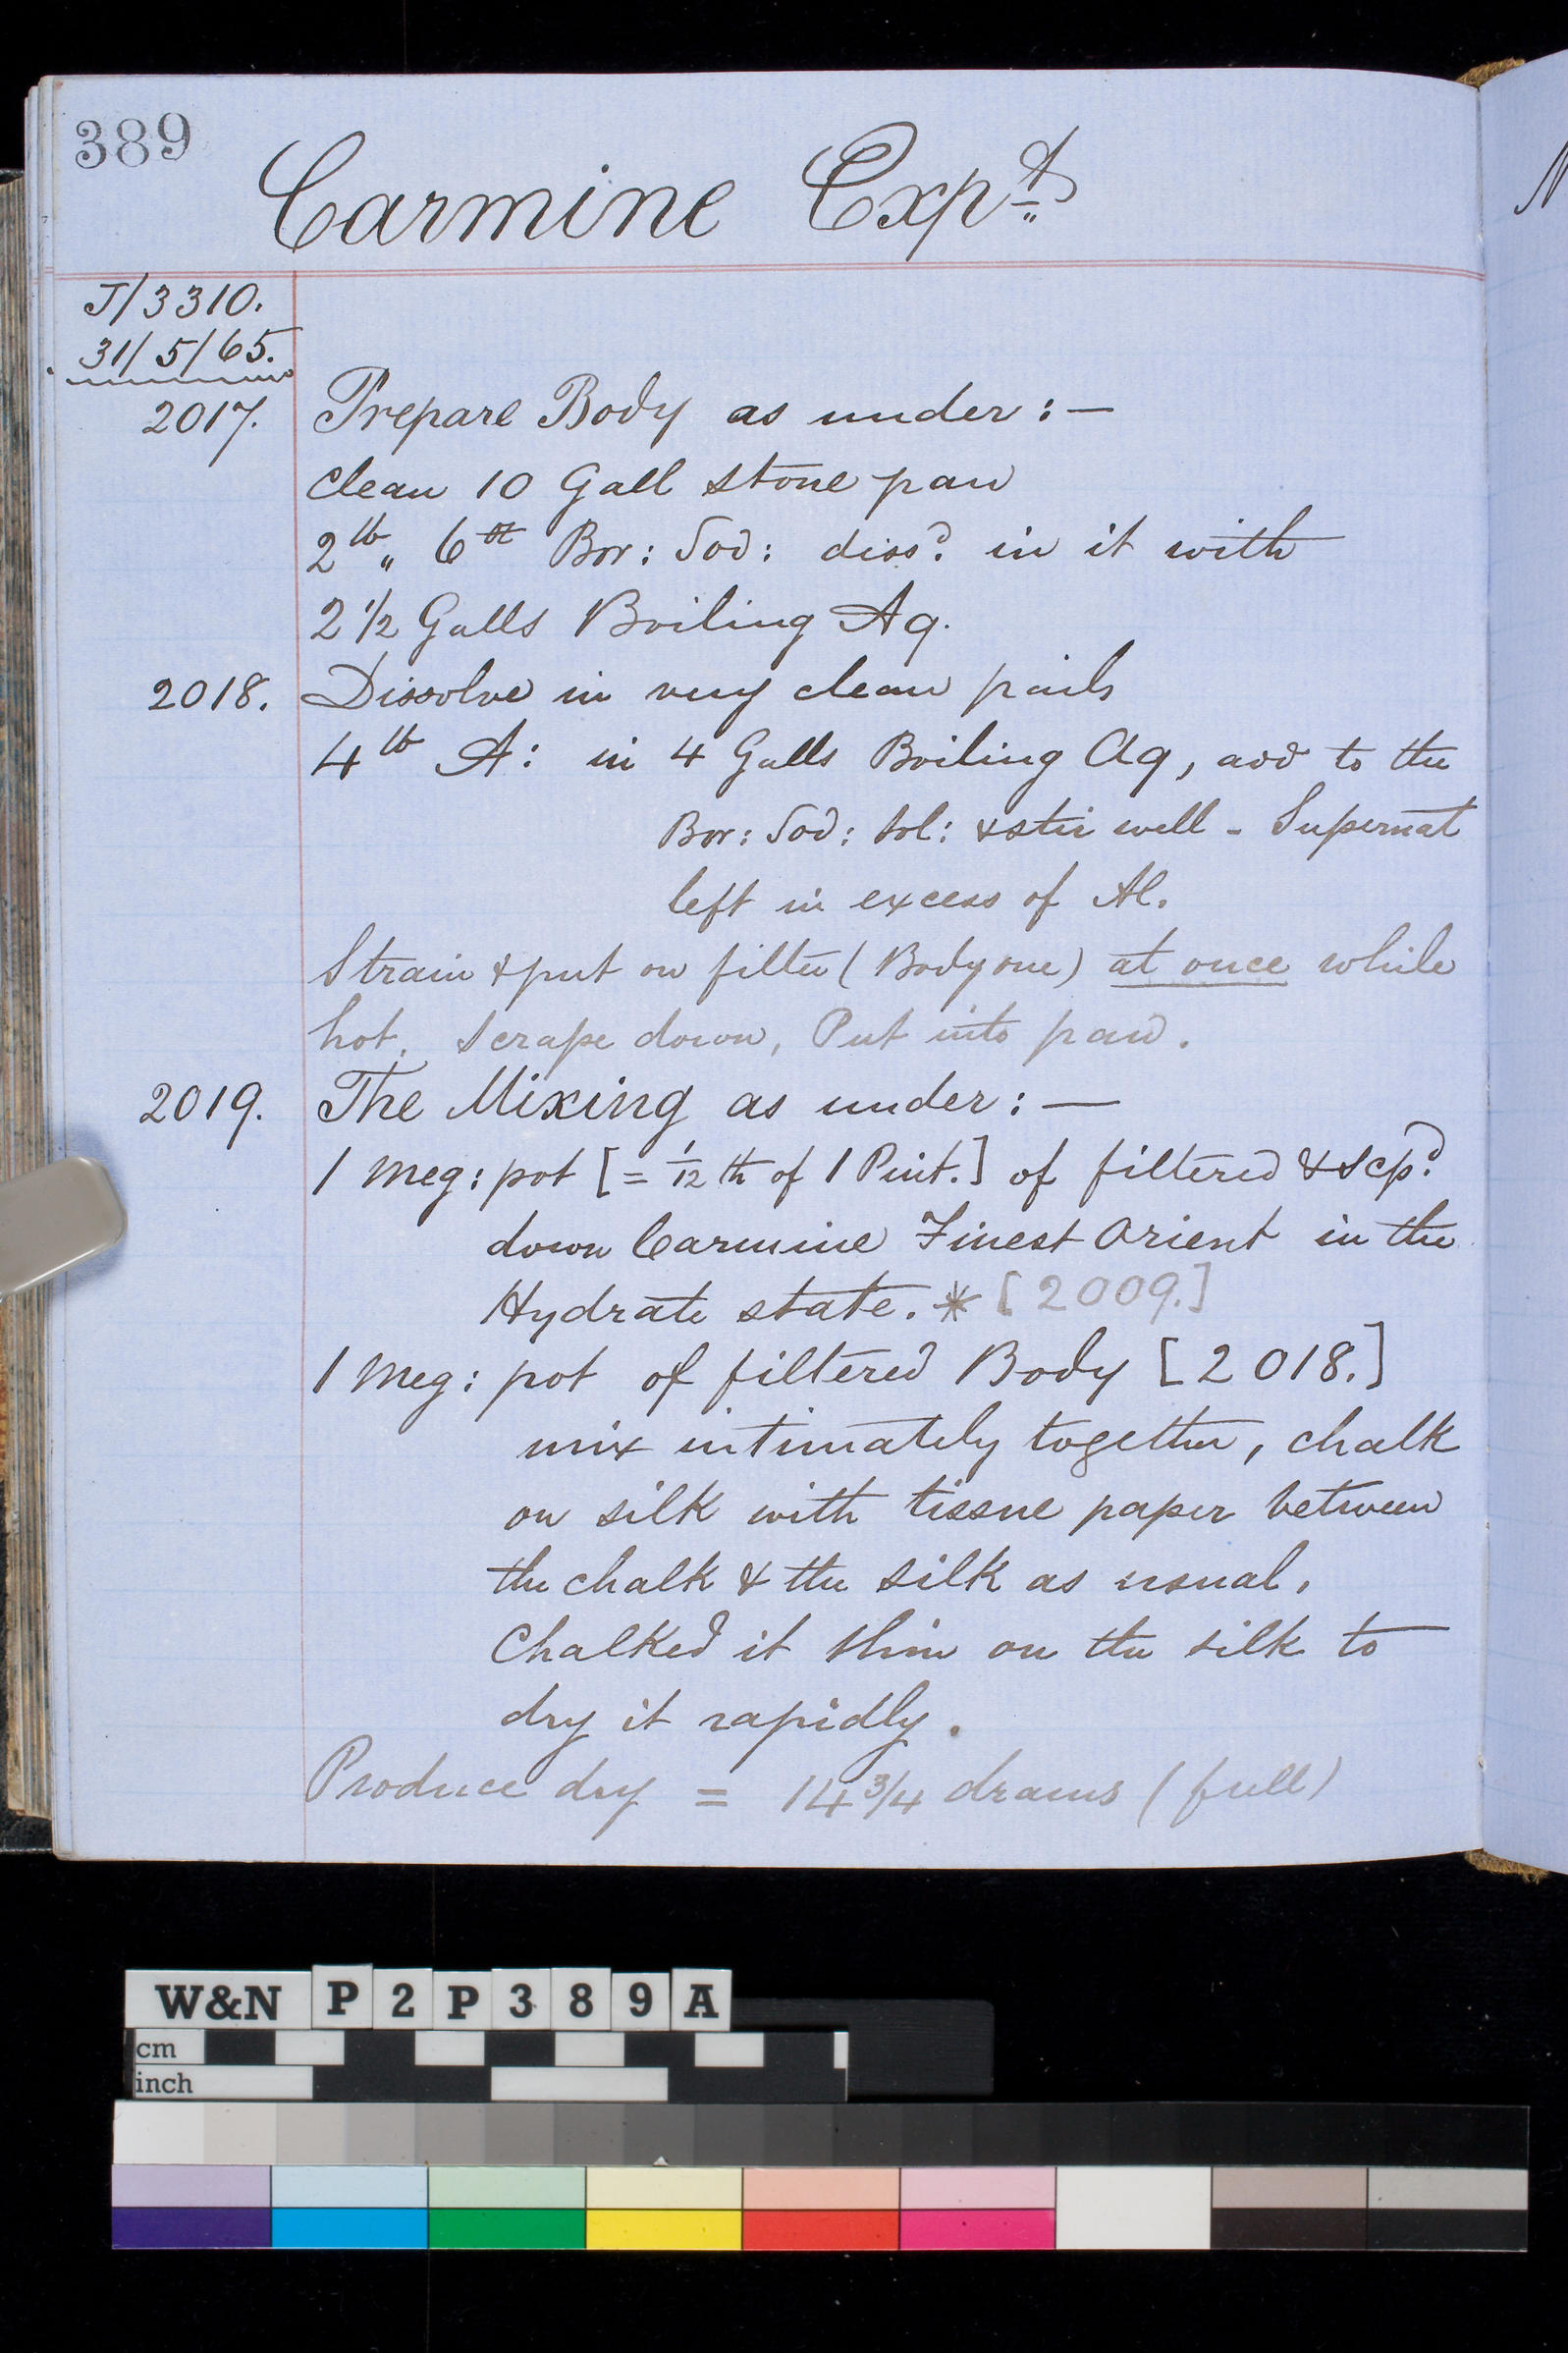 389
Carmine Expts
J/3310.
31/5/65.
2017. Prepare Body as under:—
Clean 10 Gall stone pan
2lb,, 6 oz Bor: Sod: dissd. in it with
2 1/2 Galls Boiling Aq.
2018. Dissolve in very clean pails
4lb A: in 4 Galls Boiling Aq, add to the
Bor: Sod: Sol: & stir well - Supernat
left in excess of Al.
Strain & put on filter (Body one) at once while
hot. Scrape down, Put into pan.
2019. The Mixing as under:—
1 Meg: pot [= 1/12 th of 1 Pint.] of filtered & Scpd.
down Carmine Finest Orient in the
Hydrate state. * [2009.]
1 Meg: pot of filtered Body [2018.]
mix intimately together, chalk
on silk with tissue paper between
the chalk & the silk as usual,
Chalked it thin on the silk to
dry it rapidly.
Produce dry = 14 3/4 drams (full)
W&N P2P389A
cm
inch